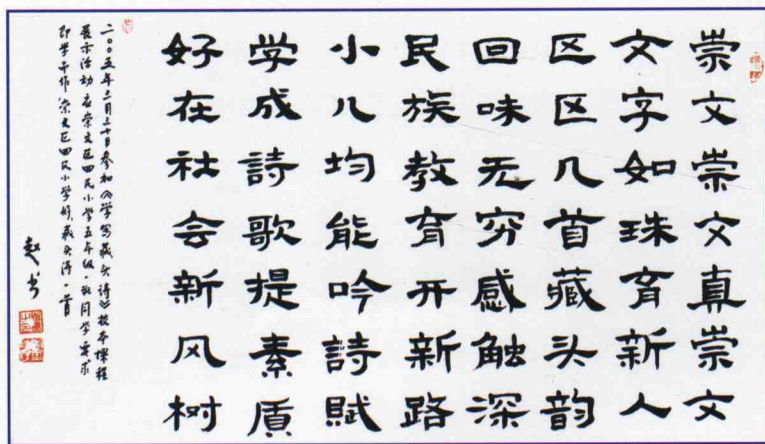 崇文崇文真崇文
文字如珠育新人
区区几首藏头韵
回味无穷感触深
民族教育开新路
小儿均能吟詩賦
学成詩歌提素质
好在社会新风树
二〇〇五年三月三十日参加《学写藏头诗》校本课程
展示活动应崇文区回民小学五年级一班同学要求
即学而作崇文区回民小学好藏头诗一首
赵书